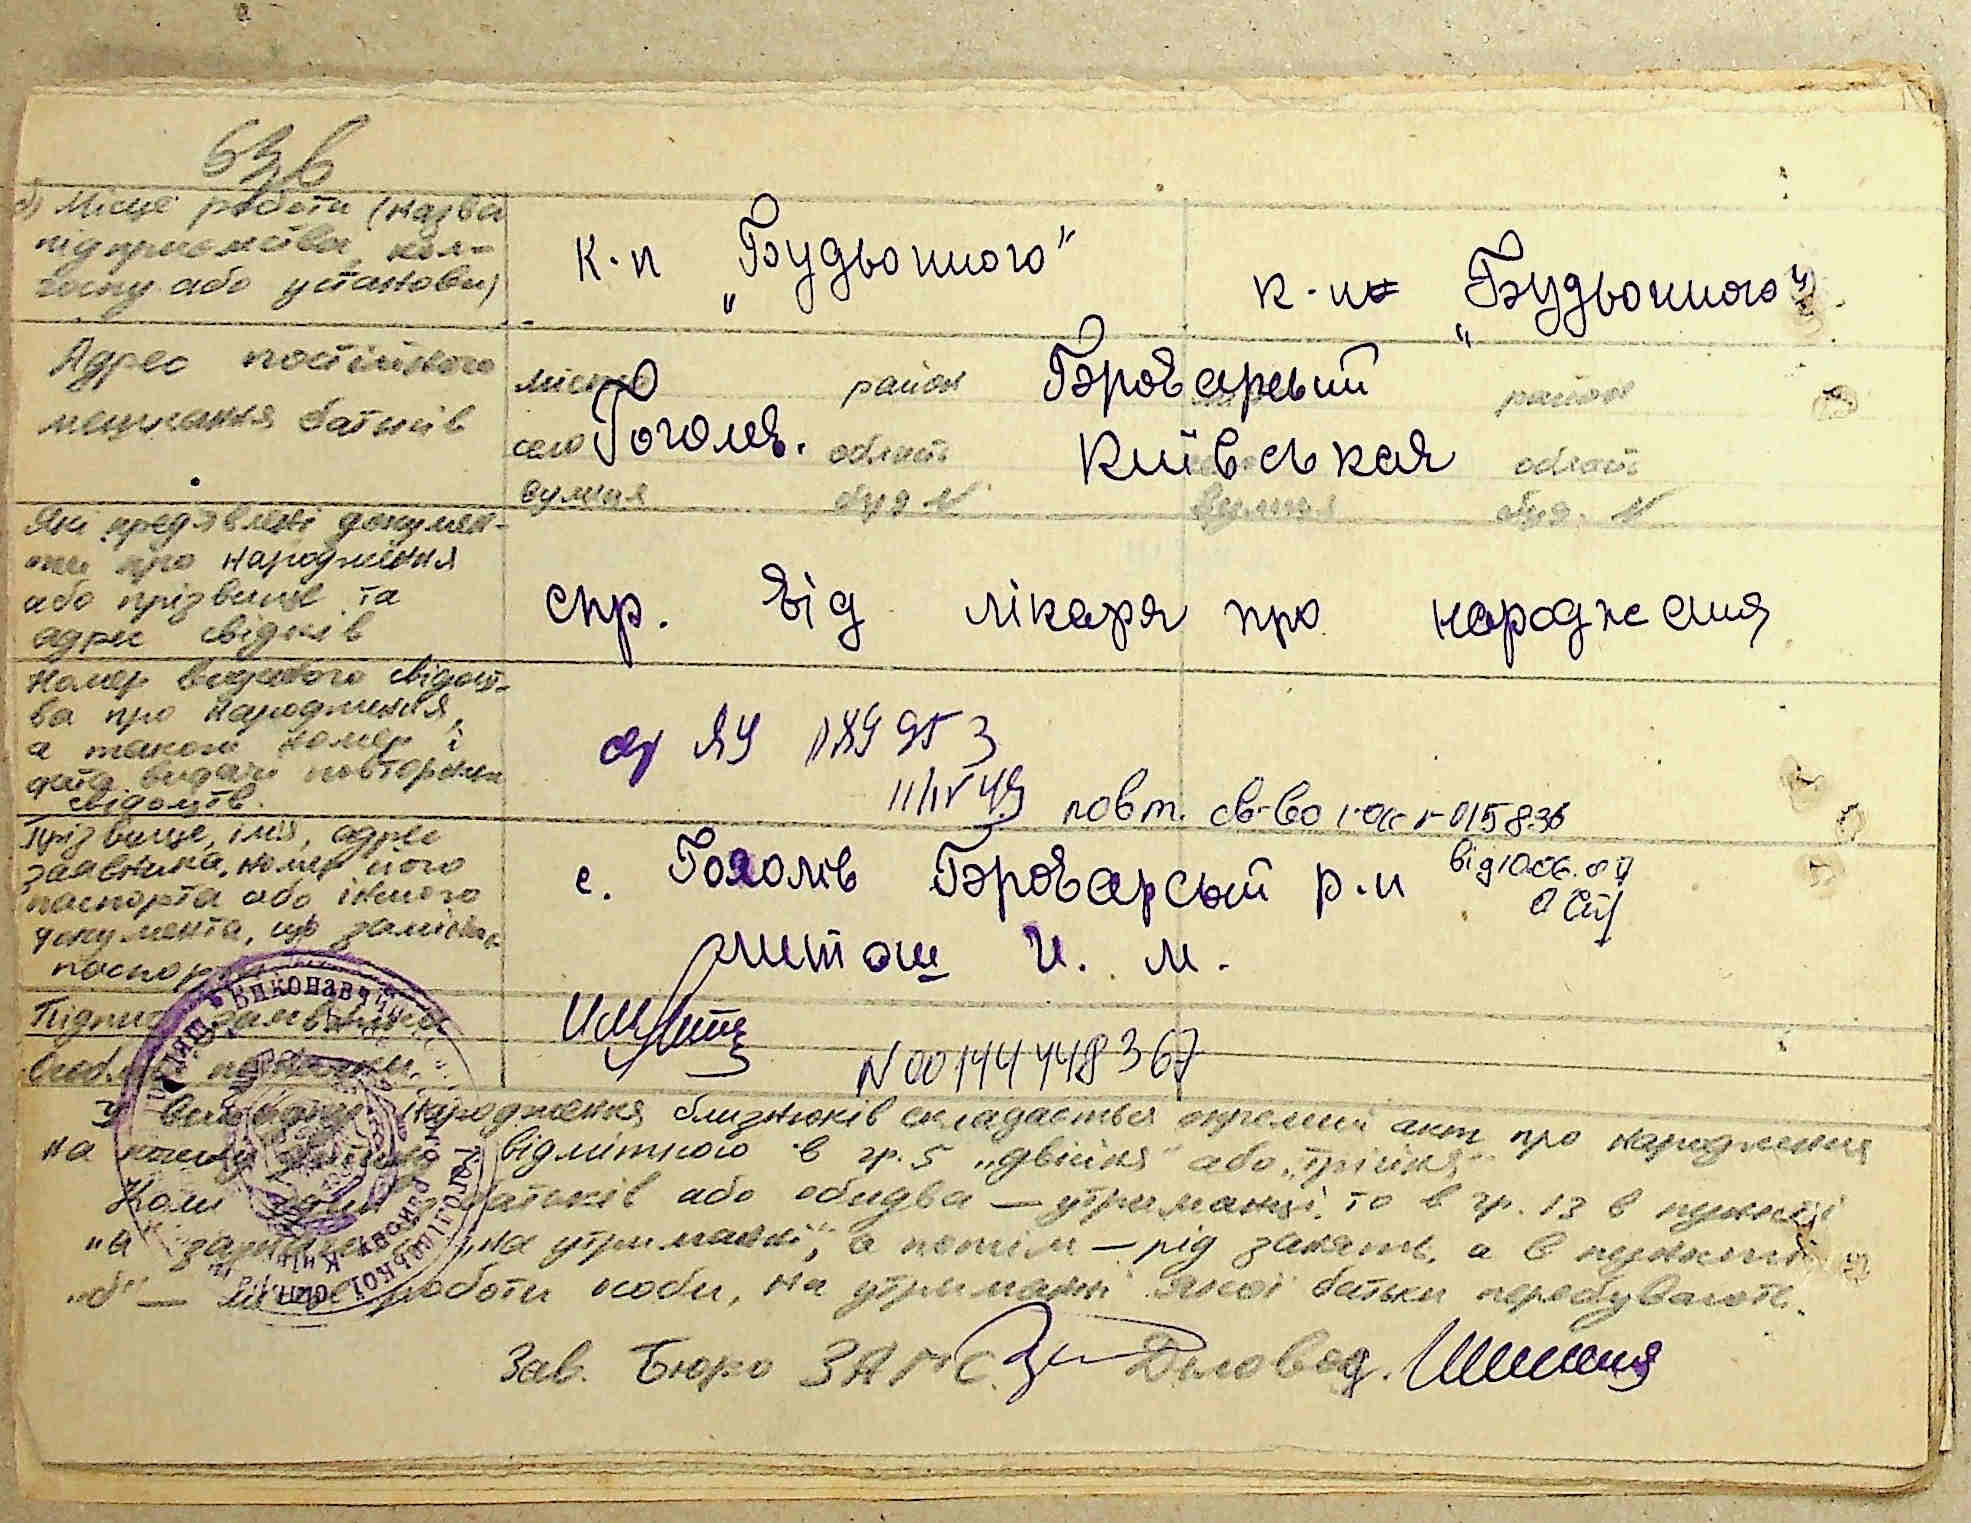 63в
б) Місце роботи (назва
підприємства, кол-
госпу або установи)
к-п „Будьонного"
к-п „Будьонного"
Адрес постійного
мешкання батьків
місто район Броварський район
село Гоголів. область Київська область
вулиця буд. № вулиця буд. №
Які пред'явлені докумен-
ти про народження
або прізвище та
адрес свідків
спр. від лікаря про народження
Номер виданого свідоц-
ва про народження,
а також номер і
дата видачі повторних
свідоцтв.
ЯУ 189953
11/IV 49 повт. св-во 015836
від 10.06.
Прізвище, імя, адрес
заявника, номер його
паспорта або іншого
документа, що заміняє
паспорт
с. Гоголів Броварський р-н
Литош И. М.
Підпис заявника
Особливі помітки.
N 00144448367
У випадку народження близнюків складається окремий акт про народження
на кожну дитину відмітного в гр. 5 „двійня" або „трійня"
Коли один з батьків або обидва — утриманці, то в гр. 13 в пункті
„а" „на утриманні", а потім — рід занять, а в пункті
„б" — місце роботи особи, на утриманні якої батьки перебувають.
Зав. Бюро ЗАГС Діловод.